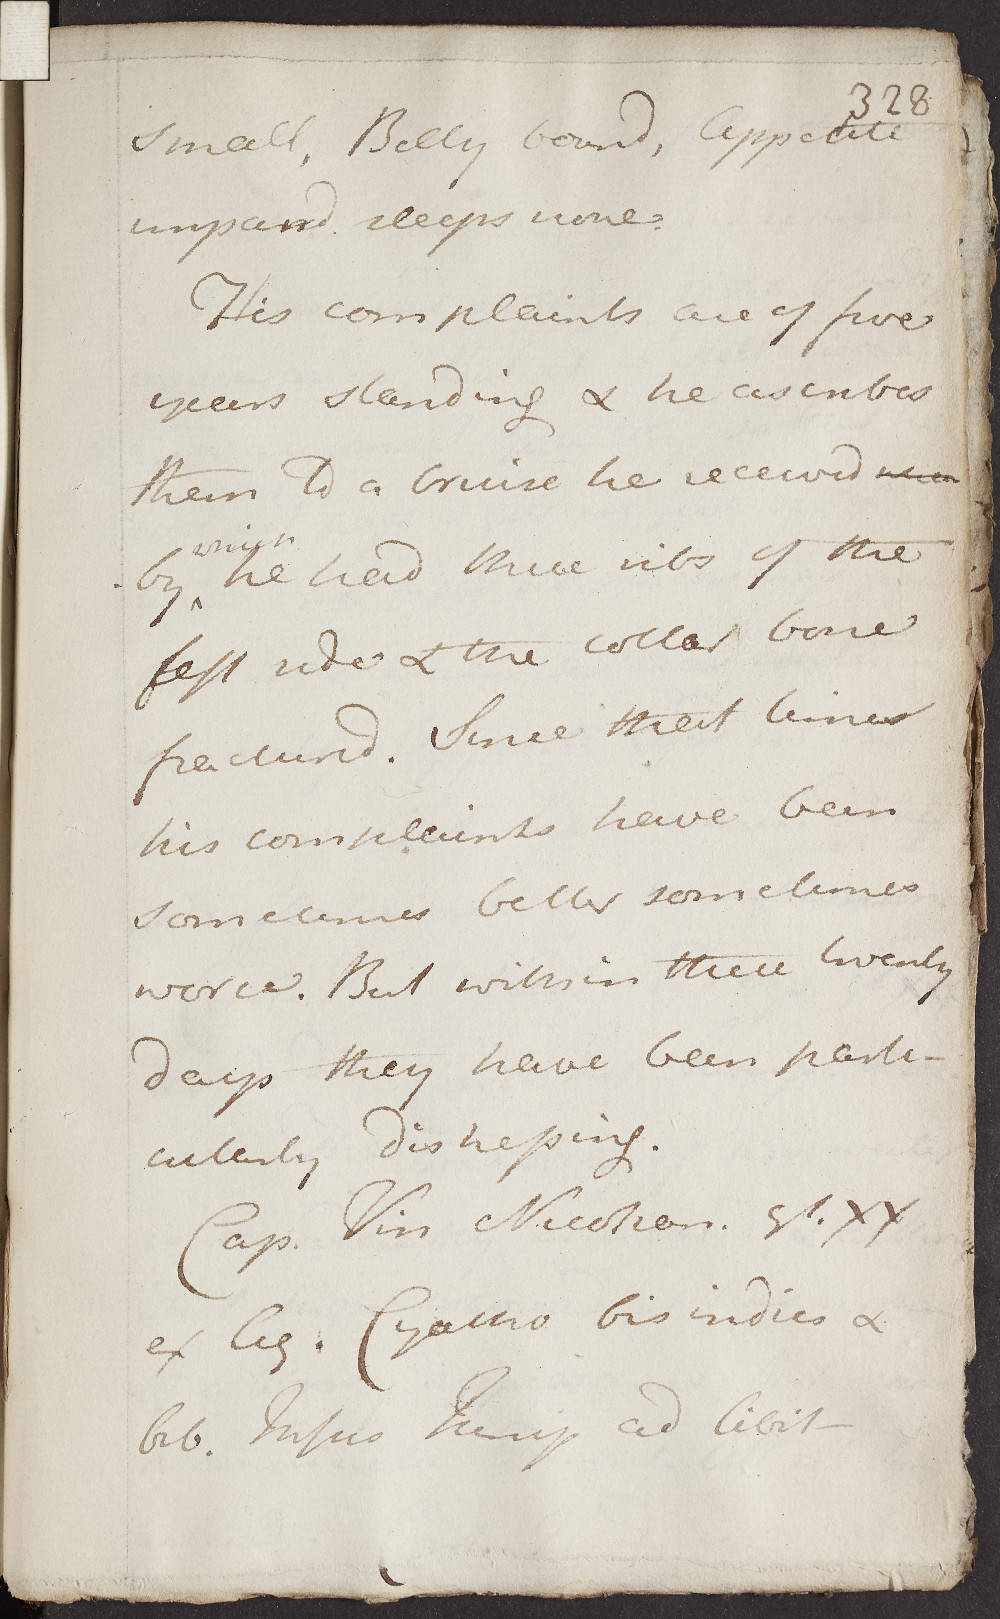 328
small, Belly bound, Appetite
impaird. sleeps none.
His complaints are of five
years standing & he ascribes
them to a bruise he received
by which he had three ribs of the
left side & the collar bone
fracturd. Since that time
his complaints have been
sometimes better sometimes
worse. But within these twenty
days they have been parti-
cularly distressing.
Cap. Vin Nicotian. gt. XX
ex Aq. Cyatho bis indies &
bib. Infus Junip ad libit